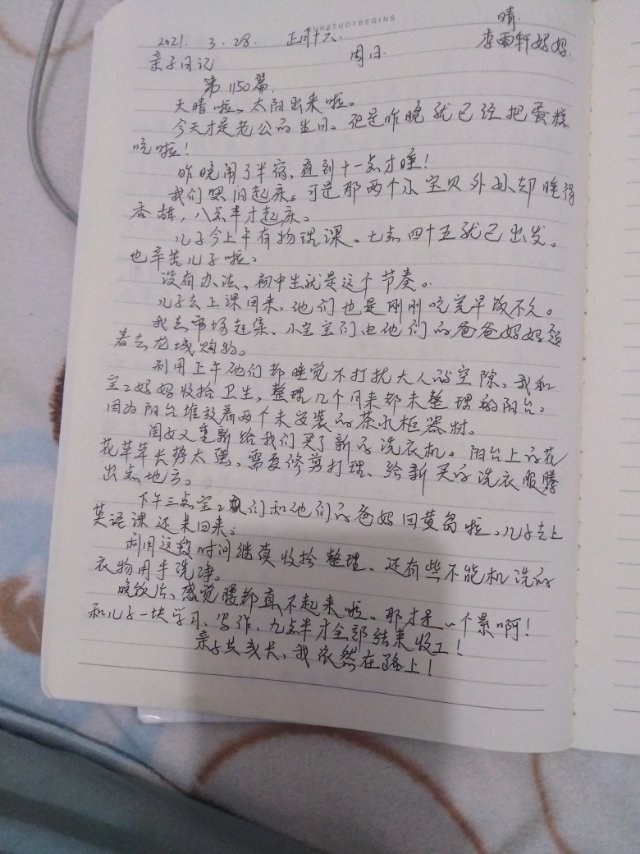 URSTUDYBEGINS
2021. 3. 28. 正月十六. 晴.
亲子日记 周日 李雨轩妈妈.
第1150篇.
天晴啦。太阳出来啦。
今天才是老公的生日。但是昨晚就已经把蛋糕
吃啦！
昨晚闹了半宿，直到十一点才睡！
我们照旧起床。可是那两个小宝贝外孙却睡得
香甜，八点半才起床。
儿子今上午有物理课。七点四十五就已出发。
也辛苦儿子啦。
没有办法、初中生就是这个节奏。
儿子去上课回来，他们也是刚刚吃完早饭不久。
我去市场赶集、小宝宝们由他们的爸爸妈妈领
着去龙域购物。
利用上午他们都睡觉不打扰大人的空隙、我和
宝宝妈妈收拾卫生，整理几个月来都未整理的阳台。
因为阳台堆放着两个未安装的茶水柜器材。
闺女又重新给我们买了新的洗衣机。阳台上的花
花草草长势太强，需要修剪打理、给新买的洗衣服腾
出点地方。
下午三点宝宝们和他们的爸妈回黄岛啦。儿子去上
英语课还未回来。
利用这段时间继续收拾整理、还有些不能机洗的
衣物用手洗净。
晚饭后，感觉腰都直不起来啦。那才是一个累啊！
和儿子一块学习、写作、九点半才全部结束收工！
亲子共成长，我依然在路上！